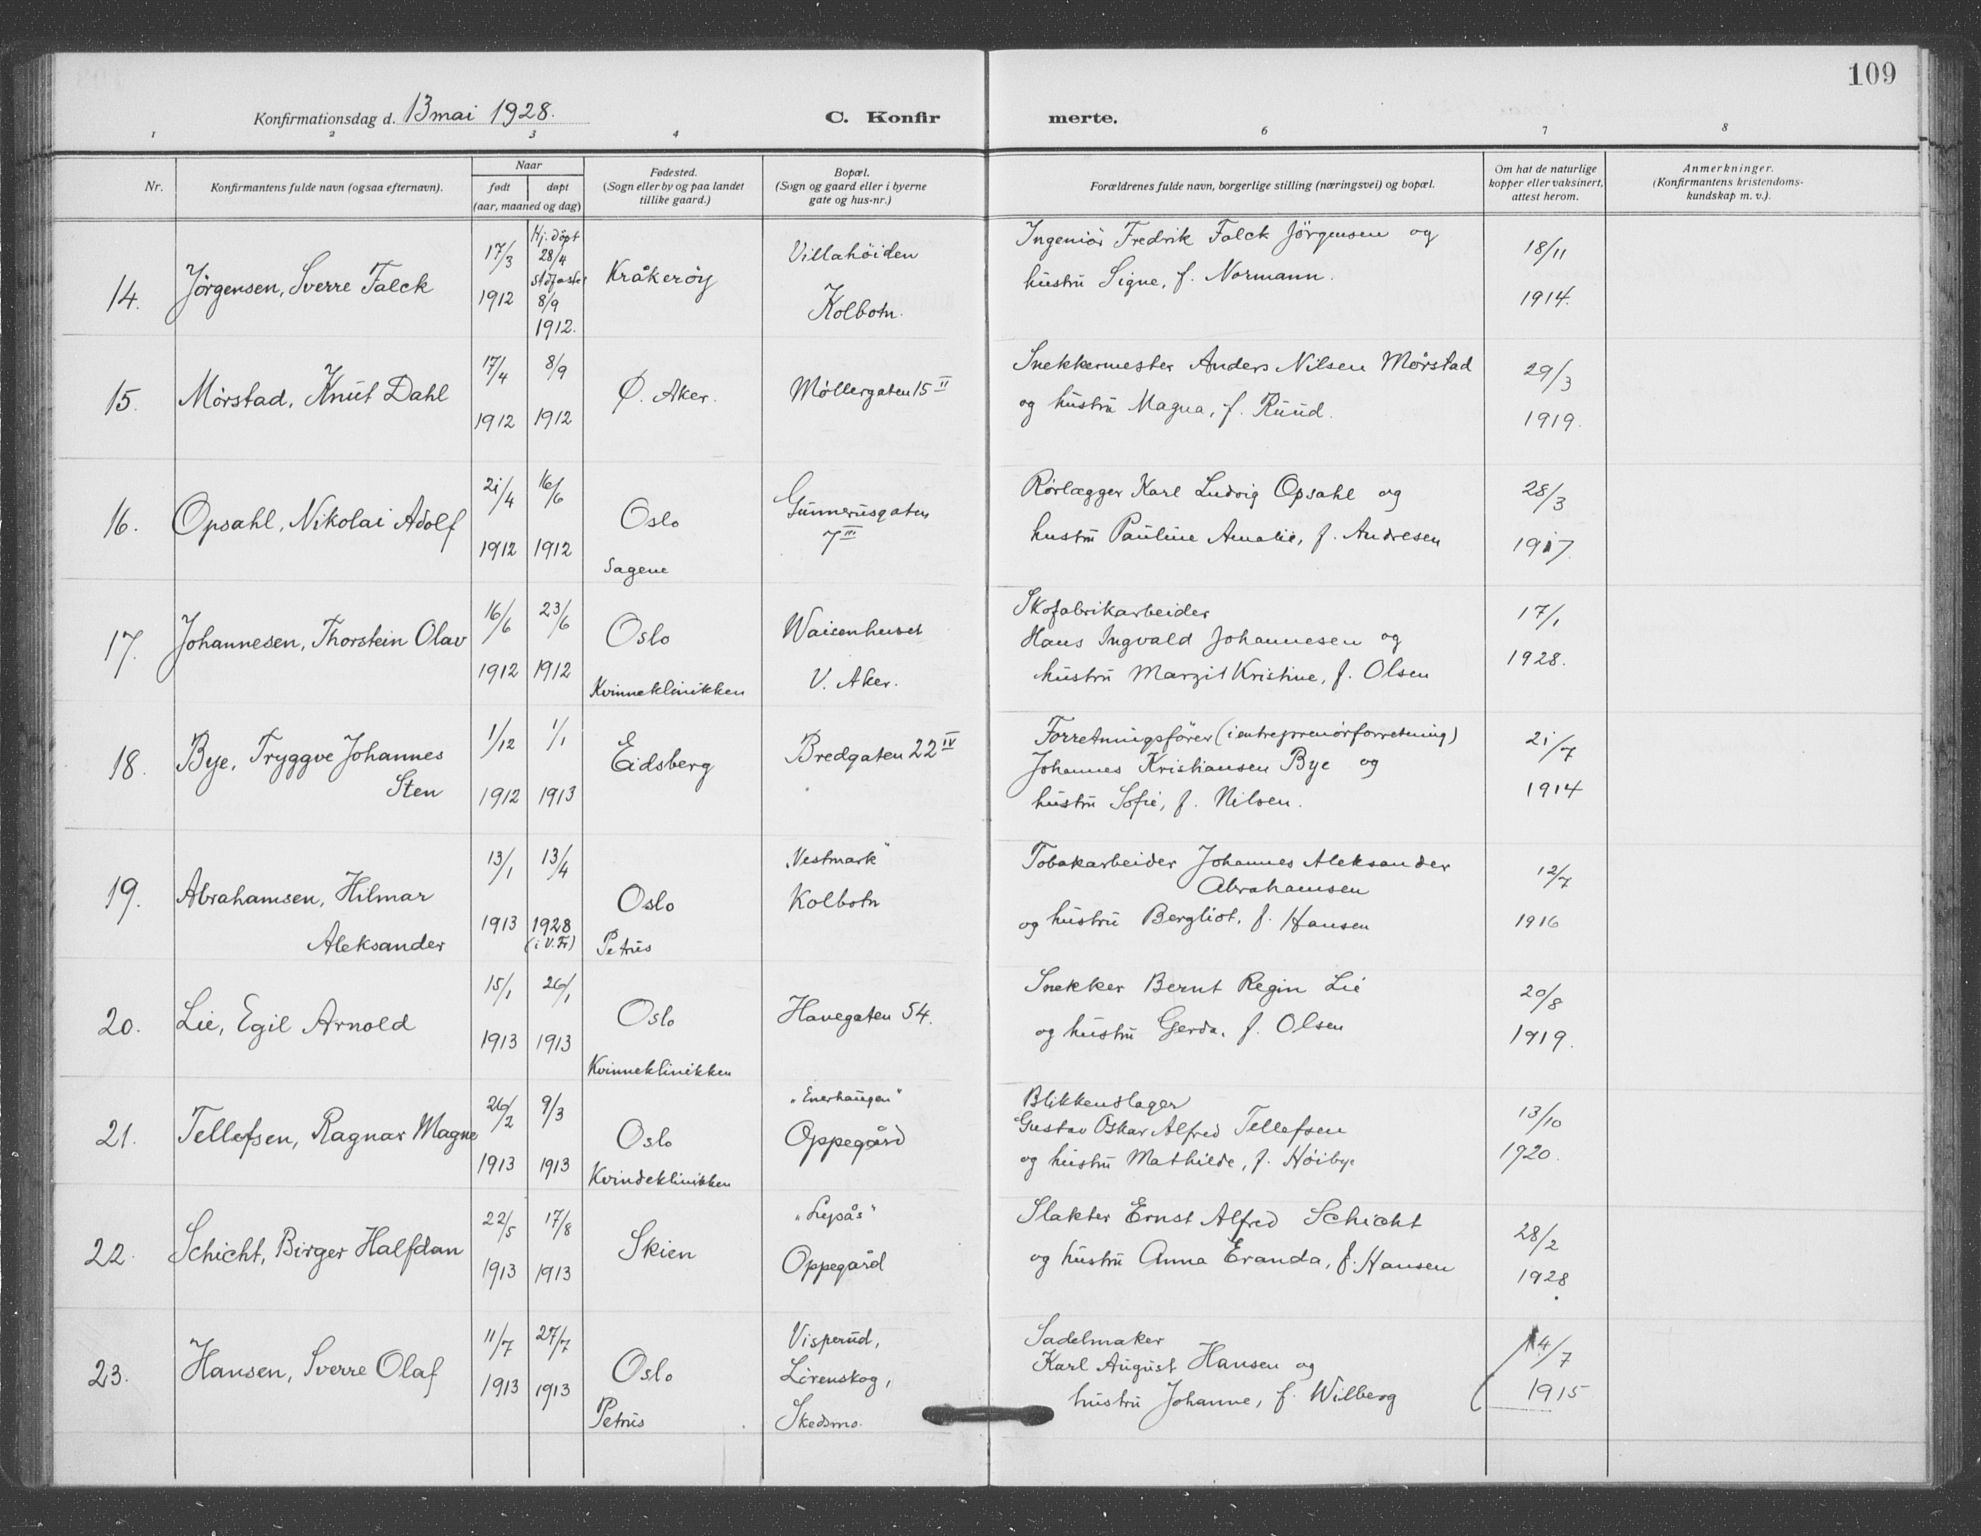 109
Konfirmationsdag d. 13 mai 1928.
C. Konfirmerte.
1 2 3 4 6 7 8
Nr.
Konfirmantens fulde navn (ogsaa efternavn).
Naar
født
døpt
(aar, maaned og dag)
Fødested.
(Sogn eller by og paa landet
tillike gaard.)
Bopæl.
(Sogn og gaard eller i byerne
gate og hus-nr.)
Forældrenes fulde navn, borgerlige stilling (næringsvei) og bopæl.
Om hat de naturlige
kopper eller vaksinert,
attest herom.
Anmerkninger.
(Konfirmantens kristendoms-
kundskap m. v.).
14. Jörgensen, Sverre Falck
17/3
1912
Hj. döpt
28/4
8/9
1912.
Kråkeröy
Villahöiden
Kolbotn.
Ingeniör Fredrik Falck Jörgensen og
hustru Signe, f. Normann.
18/11
1914.
15. Mörstad, Knut Dahl
17/4
1912
8/9
1912
Ø. Aker.
Møllergaten 15 II
Snekkermester Anders Nilsen Mörstad
og hustru Magna, f. Ruud.
29/3
1919.
16. Opsahl, Nikolai Adolf
21/4
1912
16/6
1912
Oslo
Sagene
Gunnerusgaten
7 III
Rörlægger Karl Ludvig Opsahl og
hustru Pauline Amalie, f. Andresen
28/3
1917.
17. Johannesen, Thorstein Olav
16/6
1912
23/6
1912
Oslo
Kvinneklinikken
Waisenhuset
V. Aker.
Skofabrikarbeider
Hans Ingvald Johannesen og
hustru Margit Kristine, f. Olsen
17/1
1928.
18. Bye, Tryggve Johannes
Sten
1/12
1912
1/1
1913
Eidsberg
Bredgaten 22 IV
Forretningsförer (i entreprenörforretning)
Johannes Kristiansen Bye og
hustru Sofie, f. Nilsen.
21/7
1914
19. Abrahamsen, Hilmar
Aleksander
13/1
1913
13/4
1928
(i V. Fr)
Oslo
Petrus
„Vestmark"
Kolbotn
Tobakarbeider Johannes Aleksander
Abrahamsen
og hustru Bergliot, f. Hansen
12/7
1916
20. Lie, Egil Arnold
15/1
1913
26/1
1913
Oslo
Kvinneklinikken
Havegaten 54.
Snekker Bernt Regin Lie
og hustru Gerda, f. Olsen
20/8
1919.
21. Tellefsen, Ragnar Magne
26/2
1913
9/3
1913
Oslo
Kvindeklinikken
„Enerhaugen"
Oppegård
Blikkenslager
Gustav Oskar Alfred Tellefsen
og hustru Mathilde, f. Höibye
13/10
1920.
22. Schicht, Birger Halfdan
22/5
1913
17/8
1913
Skien
Oppegård
Slakter Ernst Alfred Schicht
og hustru Anna Evanda, f. Hansen
28/2
1928
23. Hansen, Sverre Olaf
11/7
1913
27/7
1913
Oslo
Petrus
Visperud,
Lörenskog,
Skedsmo.
Sadelmaker
Karl August Hansen og
hustru Johanne, f. Wilberg
14/7
1915